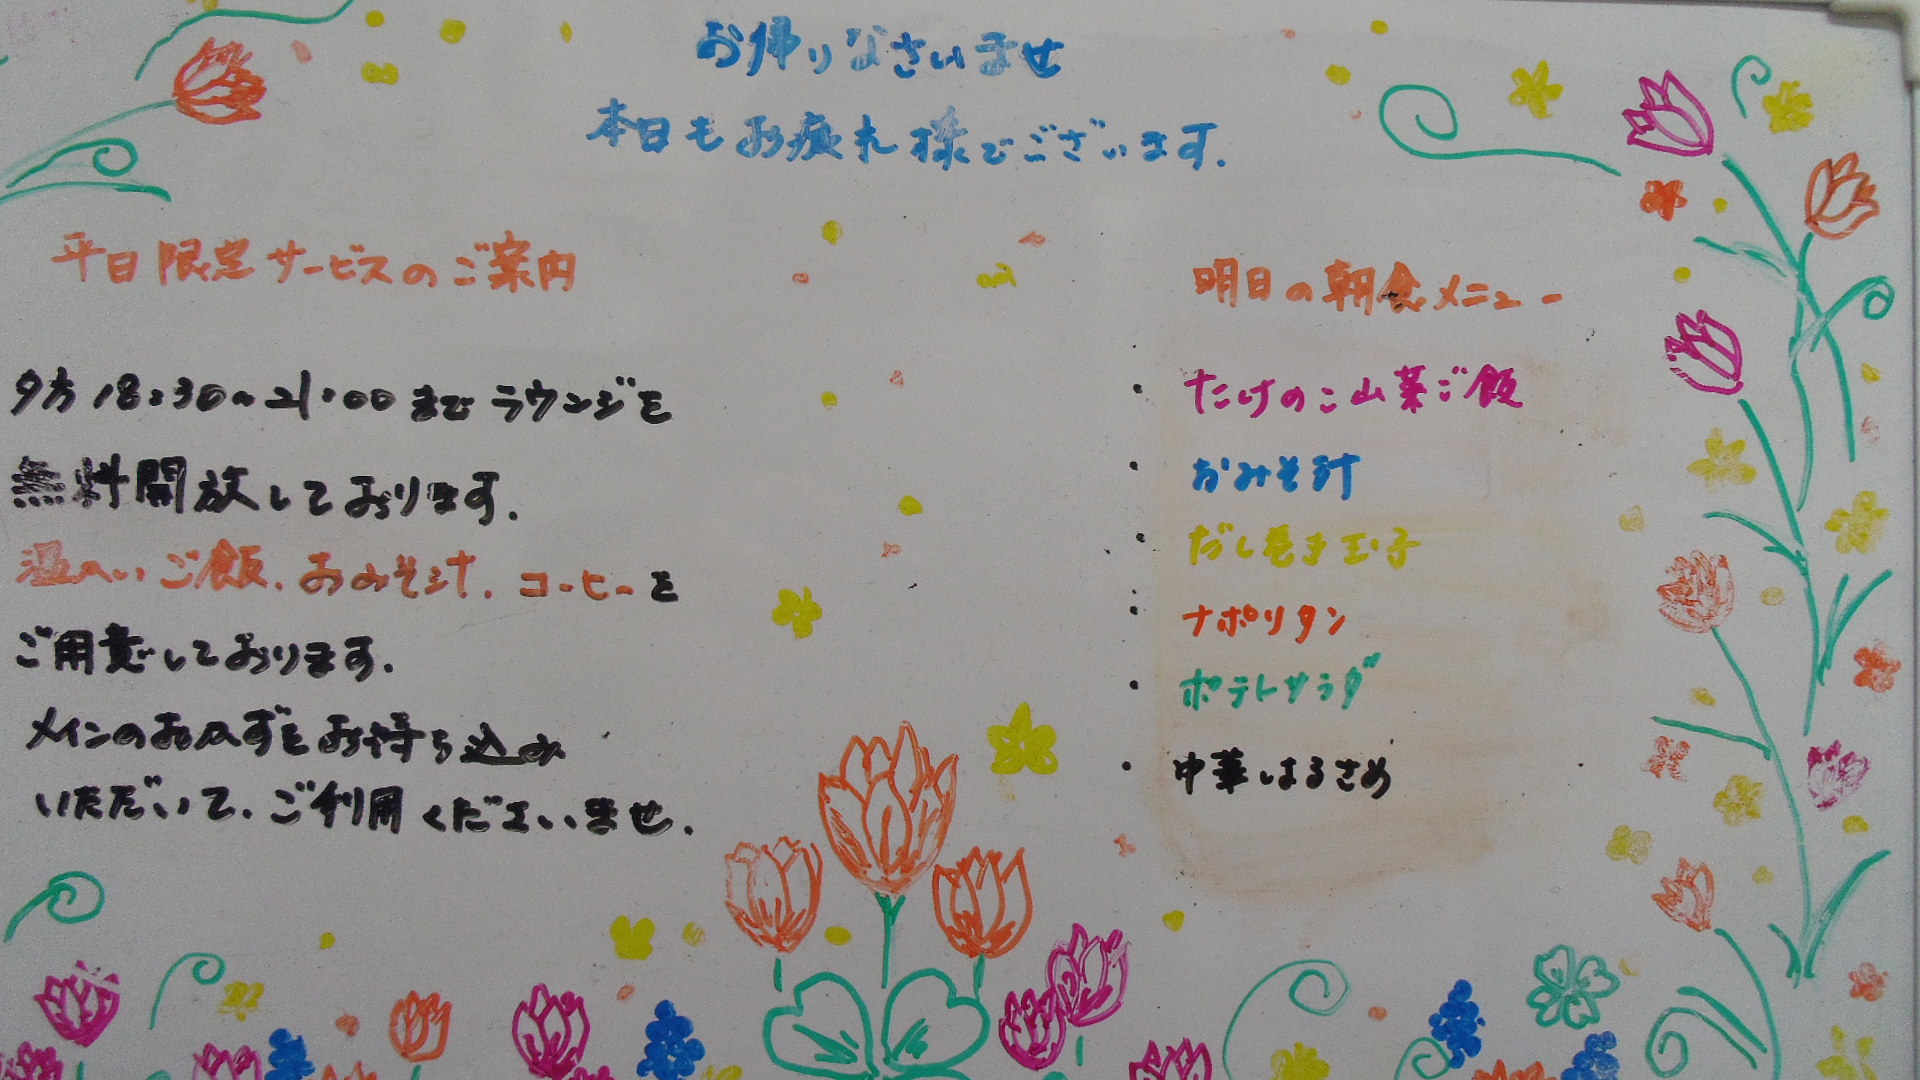 お帰りなさいませ
本日もお疲れ様でございます.
平日限定サービスのご案内
夕方18:30~21:00までラウンジを
無料開放しております.
温かいご飯.おみそ汁.コーヒーを
ご用意しております.
メインのおかずをお持ち込み
いただいて.ご利用くださいませ.
明日の朝食メニュー
・たけのこ山菜ご飯
・おみそ汁
・だし巻き玉子
・ナポリタン
・ポテトサラダ
・中華はるさめ